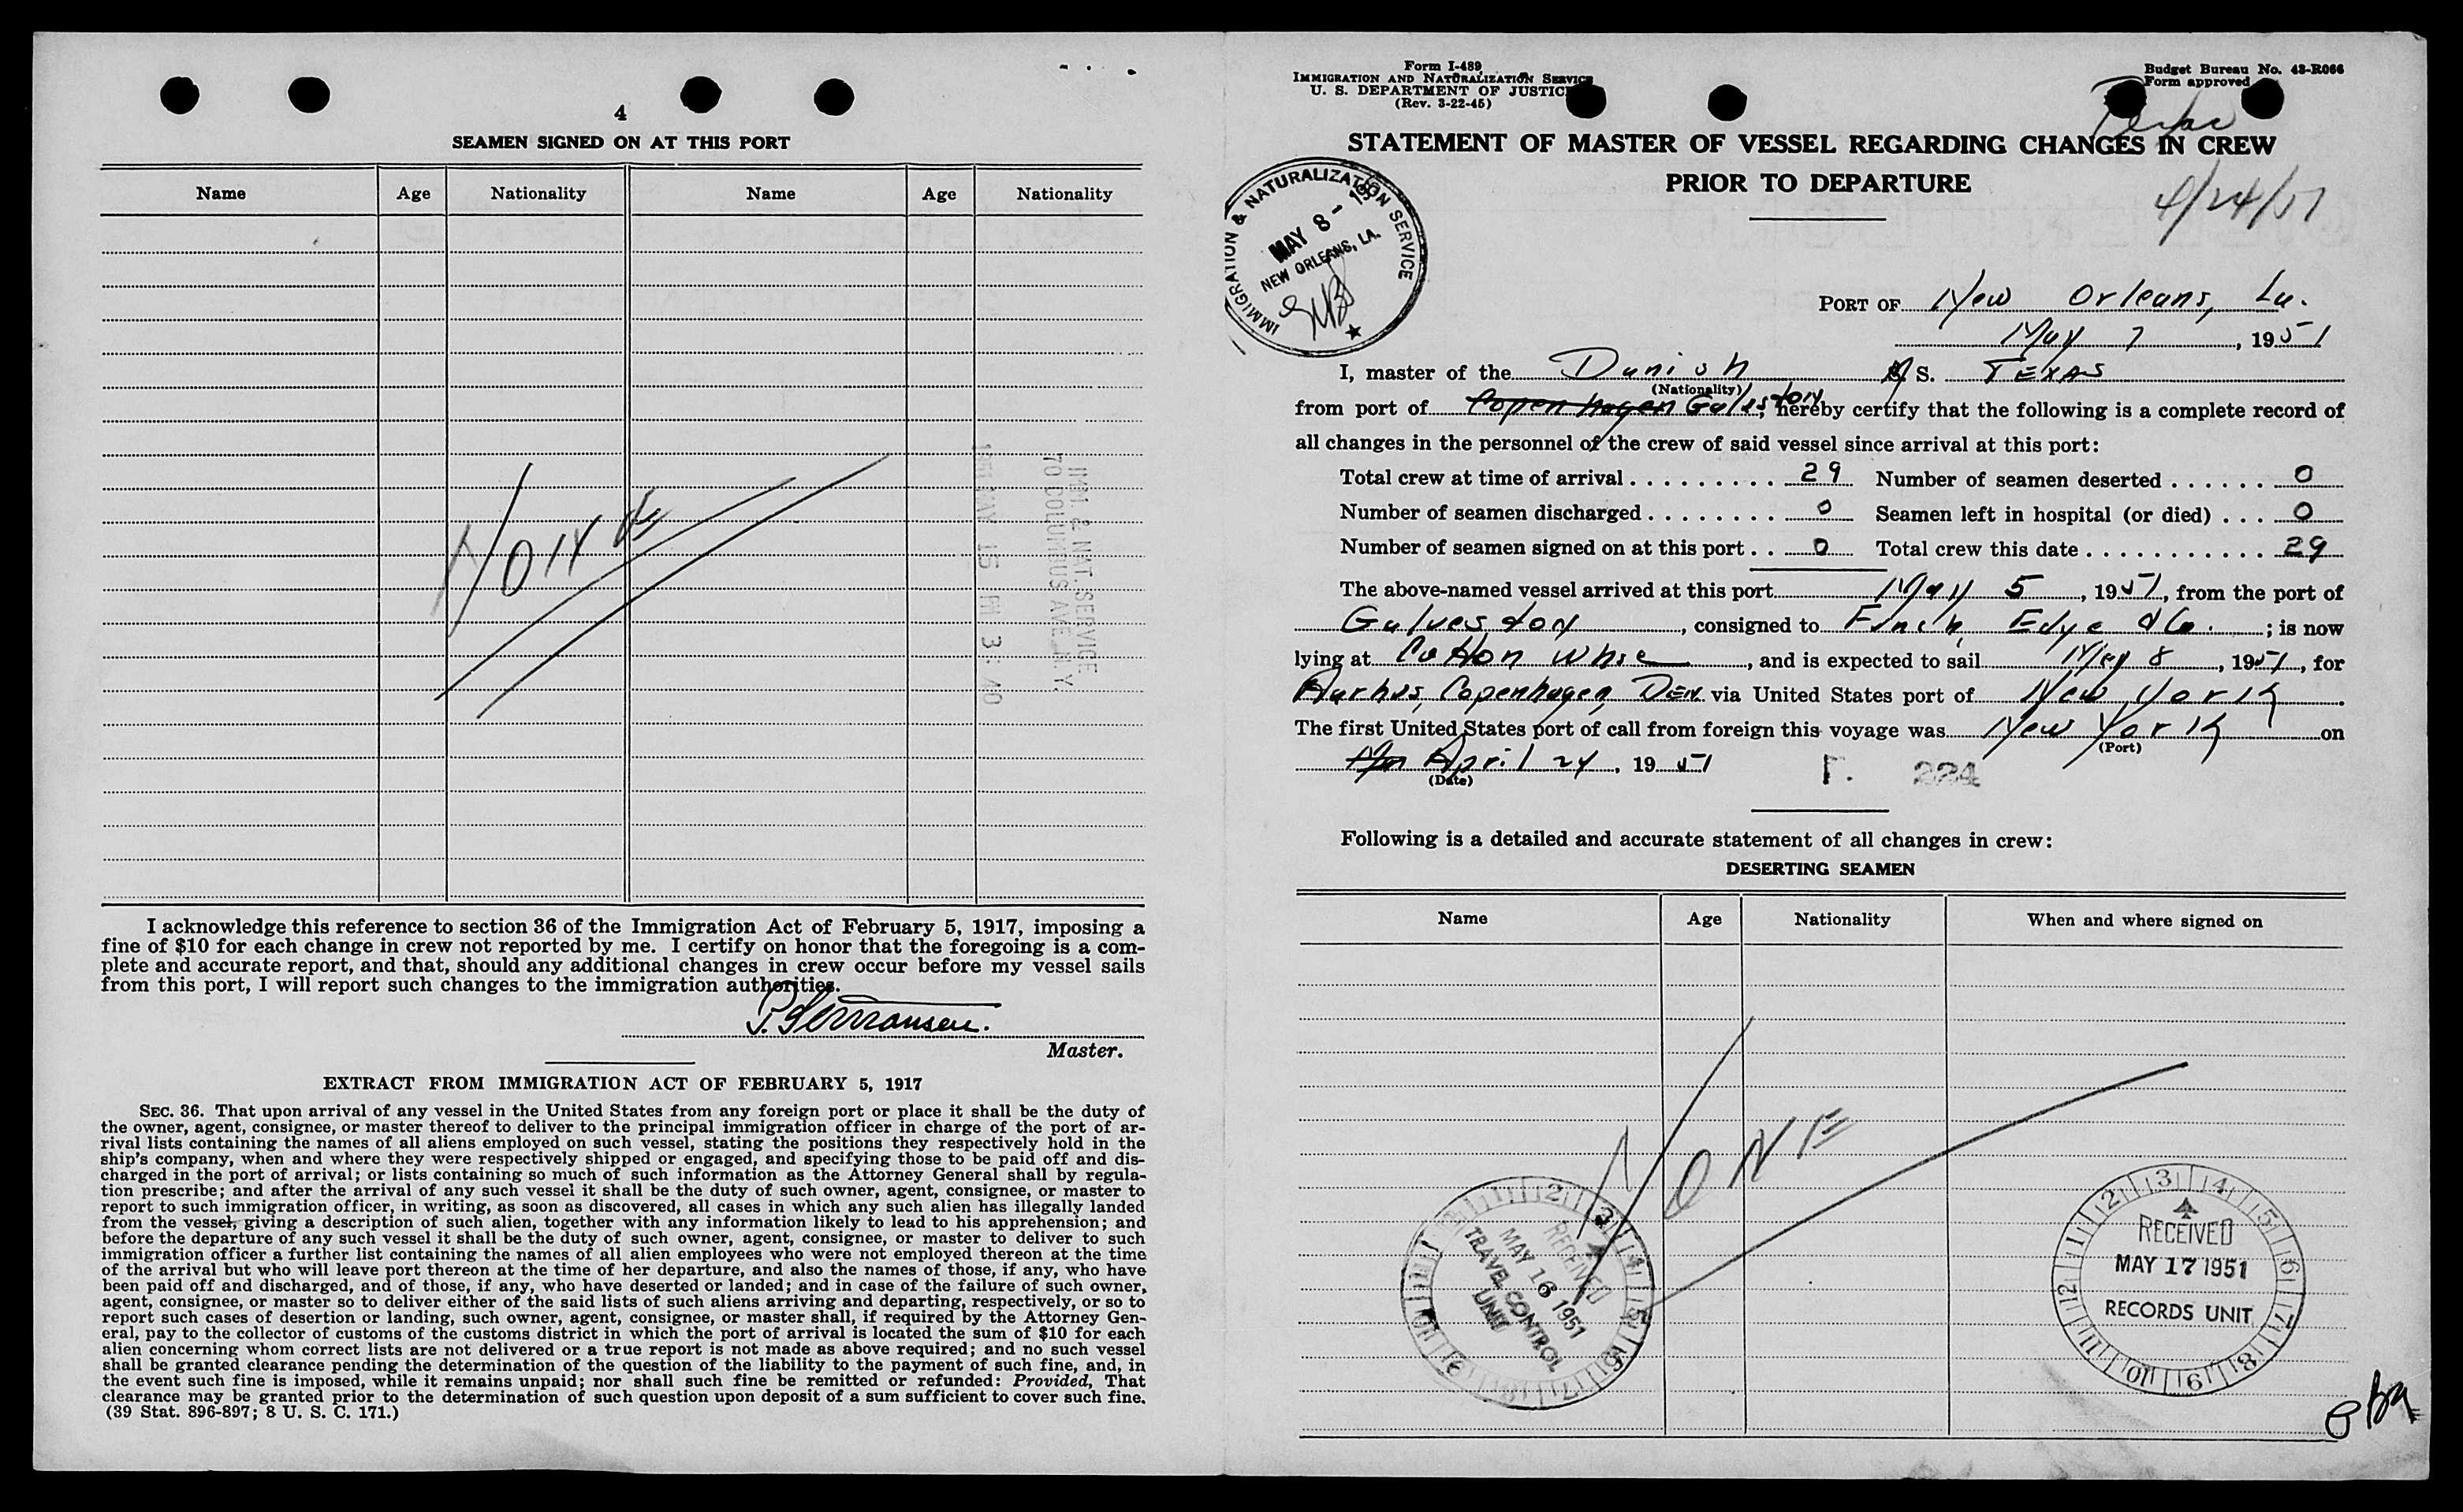 4
SEAMEN SIGNED ON AT THIS PORT
Name Age Nationality Name Age Nationality
None
IMM. & NAT. SERVICE
70 COLUMBUS AVE. N.Y.
1951 MAY 15 PM 3: 40
I acknowledge this reference to section 36 of the Immigration Act of February 5, 1917, imposing a
fine of $10 for each change in crew not reported by me. I certify on honor that the foregoing is a com-
plete and accurate report, and that, should any additional changes in crew occur before my vessel sails
from this port, I will report such changes to the immigration authorities.
P. Hermansen.
Master.
EXTRACT FROM IMMIGRATION ACT OF FEBRUARY 5, 1917
SEC. 36. That upon arrival of any vessel in the United States from any foreign port or place it shall be the duty of
the owner, agent, consignee, or master thereof to deliver to the principal immigration officer in charge of the port of ar-
rival lists containing the names of all aliens employed on such vessel, stating the positions they respectively hold in the
ship's company, when and where they were respectively shipped or engaged, and specifying those to be paid off and dis-
charged in the port of arrival; or lists containing so much of such information as the Attorney General shall by regula-
tion prescribe; and after the arrival of any such vessel it shall be the duty of such owner, agent, consignee, or master to
report to such immigration officer, in writing, as soon as discovered, all cases in which any such alien has illegally landed
from the vessel, giving a description of such alien, together with any information likely to lead to his apprehension; and
before the departure of any such vessel it shall be the duty of such owner, agent, consignee, or master to deliver to such
immigration officer a further list containing the names of all alien employees who were not employed thereon at the time
of the arrival but who will leave port thereon at the time of her departure, and also the names of those, if any, who have
been paid off and discharged, and of those, if any, who have deserted or landed; and in case of the failure of such owner,
agent, consignee, or master so to deliver either of the said lists of such aliens arriving and departing, respectively, or so to
report such cases of desertion or landing, such owner, agent, consignee, or master shall, if required by the Attorney Gen-
eral, pay to the collector of customs of the customs district in which the port of arrival is located the sum of $10 for each
alien concerning whom correct lists are not delivered or a true report is not made as above required; and no such vessel
shall be granted clearance pending the determination of the question of the liability to the payment of such fine, and, in
the event such fine is imposed, while it remains unpaid; nor shall such fine be remitted or refunded: Provided, That
clearance may be granted prior to the determination of such question upon deposit of a sum sufficient to cover such fine.
(39 Stat. 896-897; 8 U. S. C. 171.)
Form I-489
IMMIGRATION AND NATURALIZATION SERVICE
U. S. DEPARTMENT OF JUSTICE
(Rev. 3-22-45)
Budget Bureau No. 43-R066
Form approved
STATEMENT OF MASTER OF VESSEL REGARDING CHANGES IN CREW
PRIOR TO DEPARTURE
4/24/51
IMMIGRATION & NATURALIZATION SERVICE
MAY 8 - 195
NEW ORLEANS, LA.
PORT OF New Orleans, La.
May 7, 1951
I, master of the Danish M S. TEXAS
(Nationality)
from port of Copenhagen Galveston, hereby certify that the following is a complete record of
all changes in the personnel of the crew of said vessel since arrival at this port:
Total crew at time of arrival 29 Number of seamen deserted 0
Number of seamen discharged 0 Seamen left in hospital (or died) 0
Number of seamen signed on at this port 0 Total crew this date 29
The above-named vessel arrived at this port May 5, 1951, from the port of
Galveston, consigned to Finch, Edye & Co.; is now
lying at Cotton Whse, and is expected to sail May 8, 1951, for
Aarhus, Copenhagen, DEN. via United States port of New York.
The first United States port of call from foreign this voyage was New York on
(Port)
April 24, 1951
(Date)
F. 224
Following is a detailed and accurate statement of all changes in crew:
DESERTING SEAMEN
Name Age Nationality When and where signed on
NONE
RECEIVED
MAY 16 1951
TRAVEL CONTROL
UNIT
RECEIVED
MAY 17 1951
RECORDS UNIT